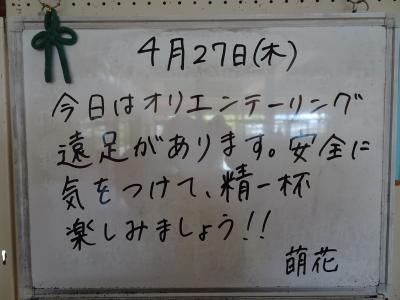 4月27日(木)
今日はオリエンテーリング
遠足があります。安全に
気をつけて、精一杯
楽しみましょう!!
萌花